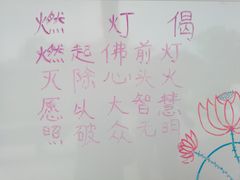 燃灯偈
燃起佛前灯
灭除心头火
愿以大智慧
照破众无明